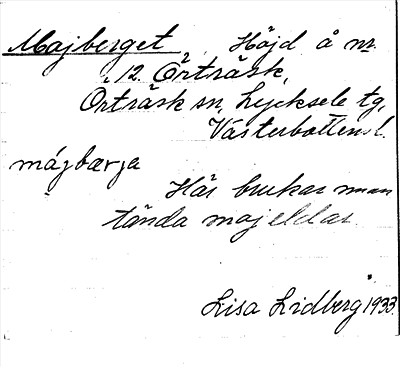 Majberget, Höjd å nr
12. Örträsk,
Örträsk sn, Lycksele tg,
Västerbottens l.
májbærja
Här brukar man
tända majeldar.
Lisa Lidberg 1933.